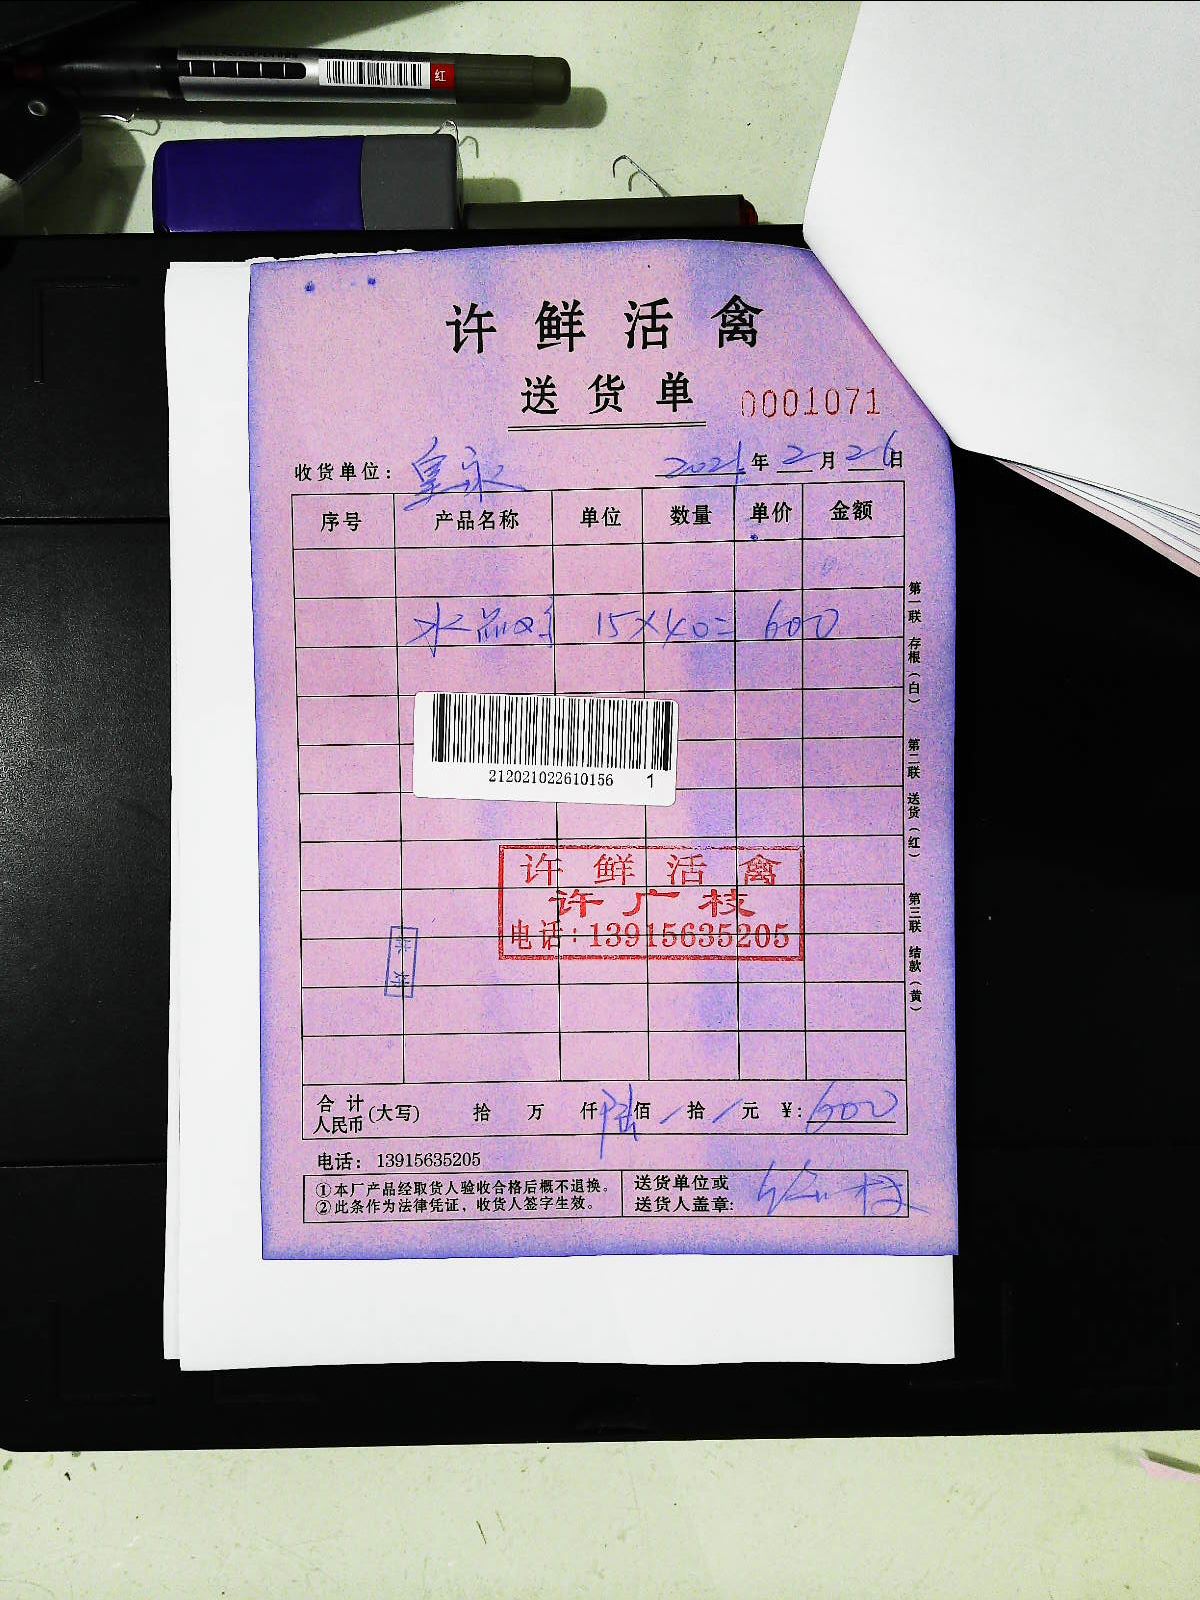 红
许鲜活禽
送货单 0001071
收货单位: 皇家 2021年2月26日
序号 产品名称 单位 数量 单价 金额
水品鸡 15×40=600
212021022610156 1
许鲜活禽
许广枝
电话:13915635205
合计人民币(大写) 拾 万 仟陆佰/拾/元 ¥:600
电话: 13915635205
①本厂产品经取货人验收合格后概不退换。
②此条作为法律凭证,收货人签字生效。
送货单位或
送货人盖章:
第一联 存根(白)
第二联 送货(红)
第三联 结款(黄)